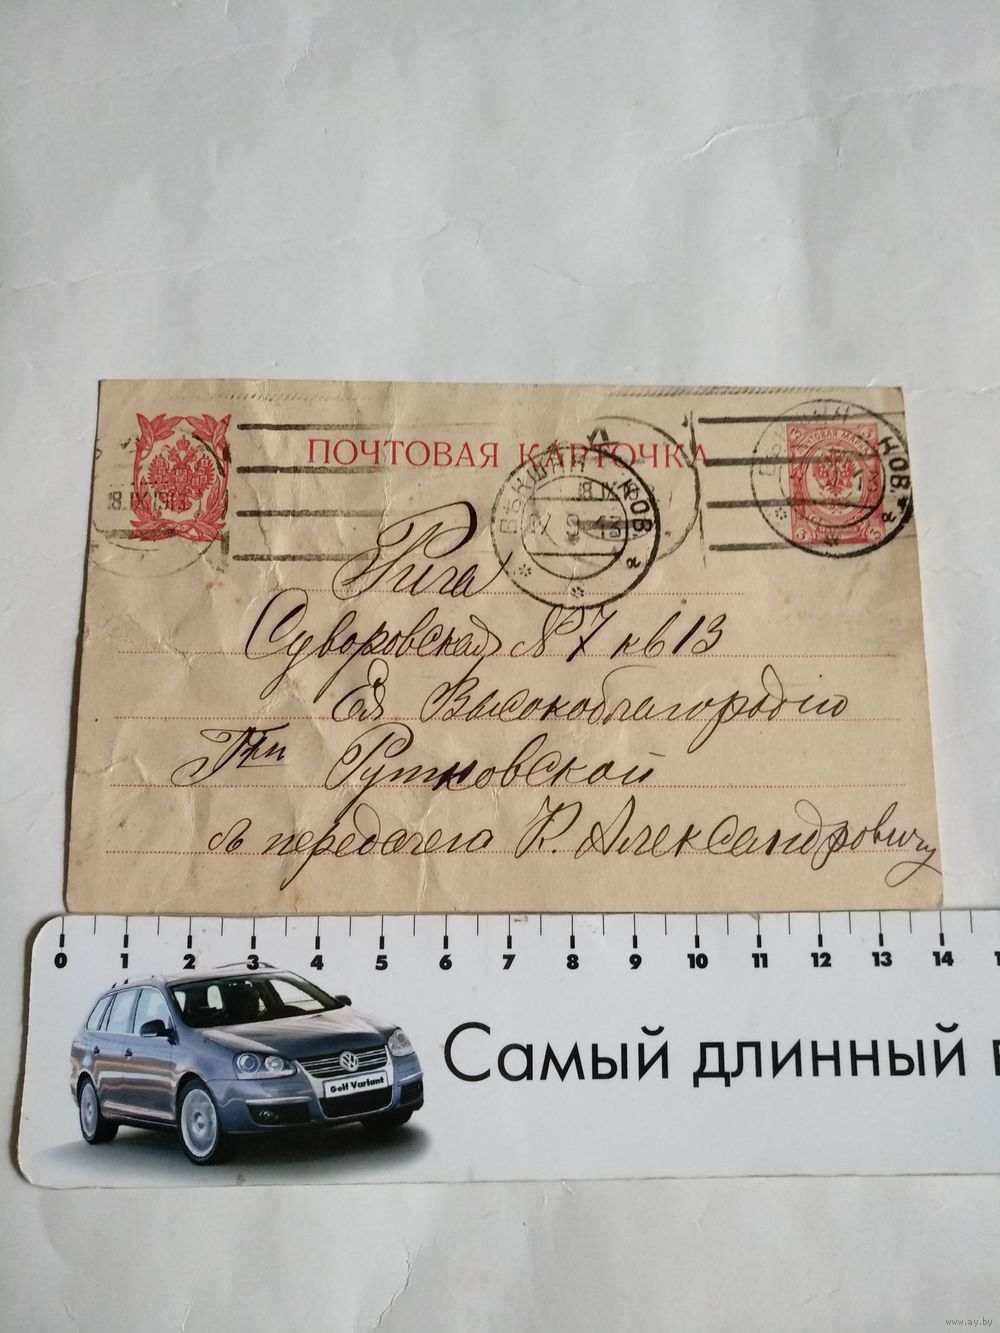 ПОЧТОВАЯ КАРТОЧКА
ВѢКШНИ КОВ.
8.IX.13
Рига
Суворовская № 7 кв 13
Ея Высокоблагородію
Г-жи Рутковской
передачею К. Александровичу
0 1 2 3 4 5 6 7 8 9 10 11 12 13 14
Golf Variant
Самый длинный
www.ay.by